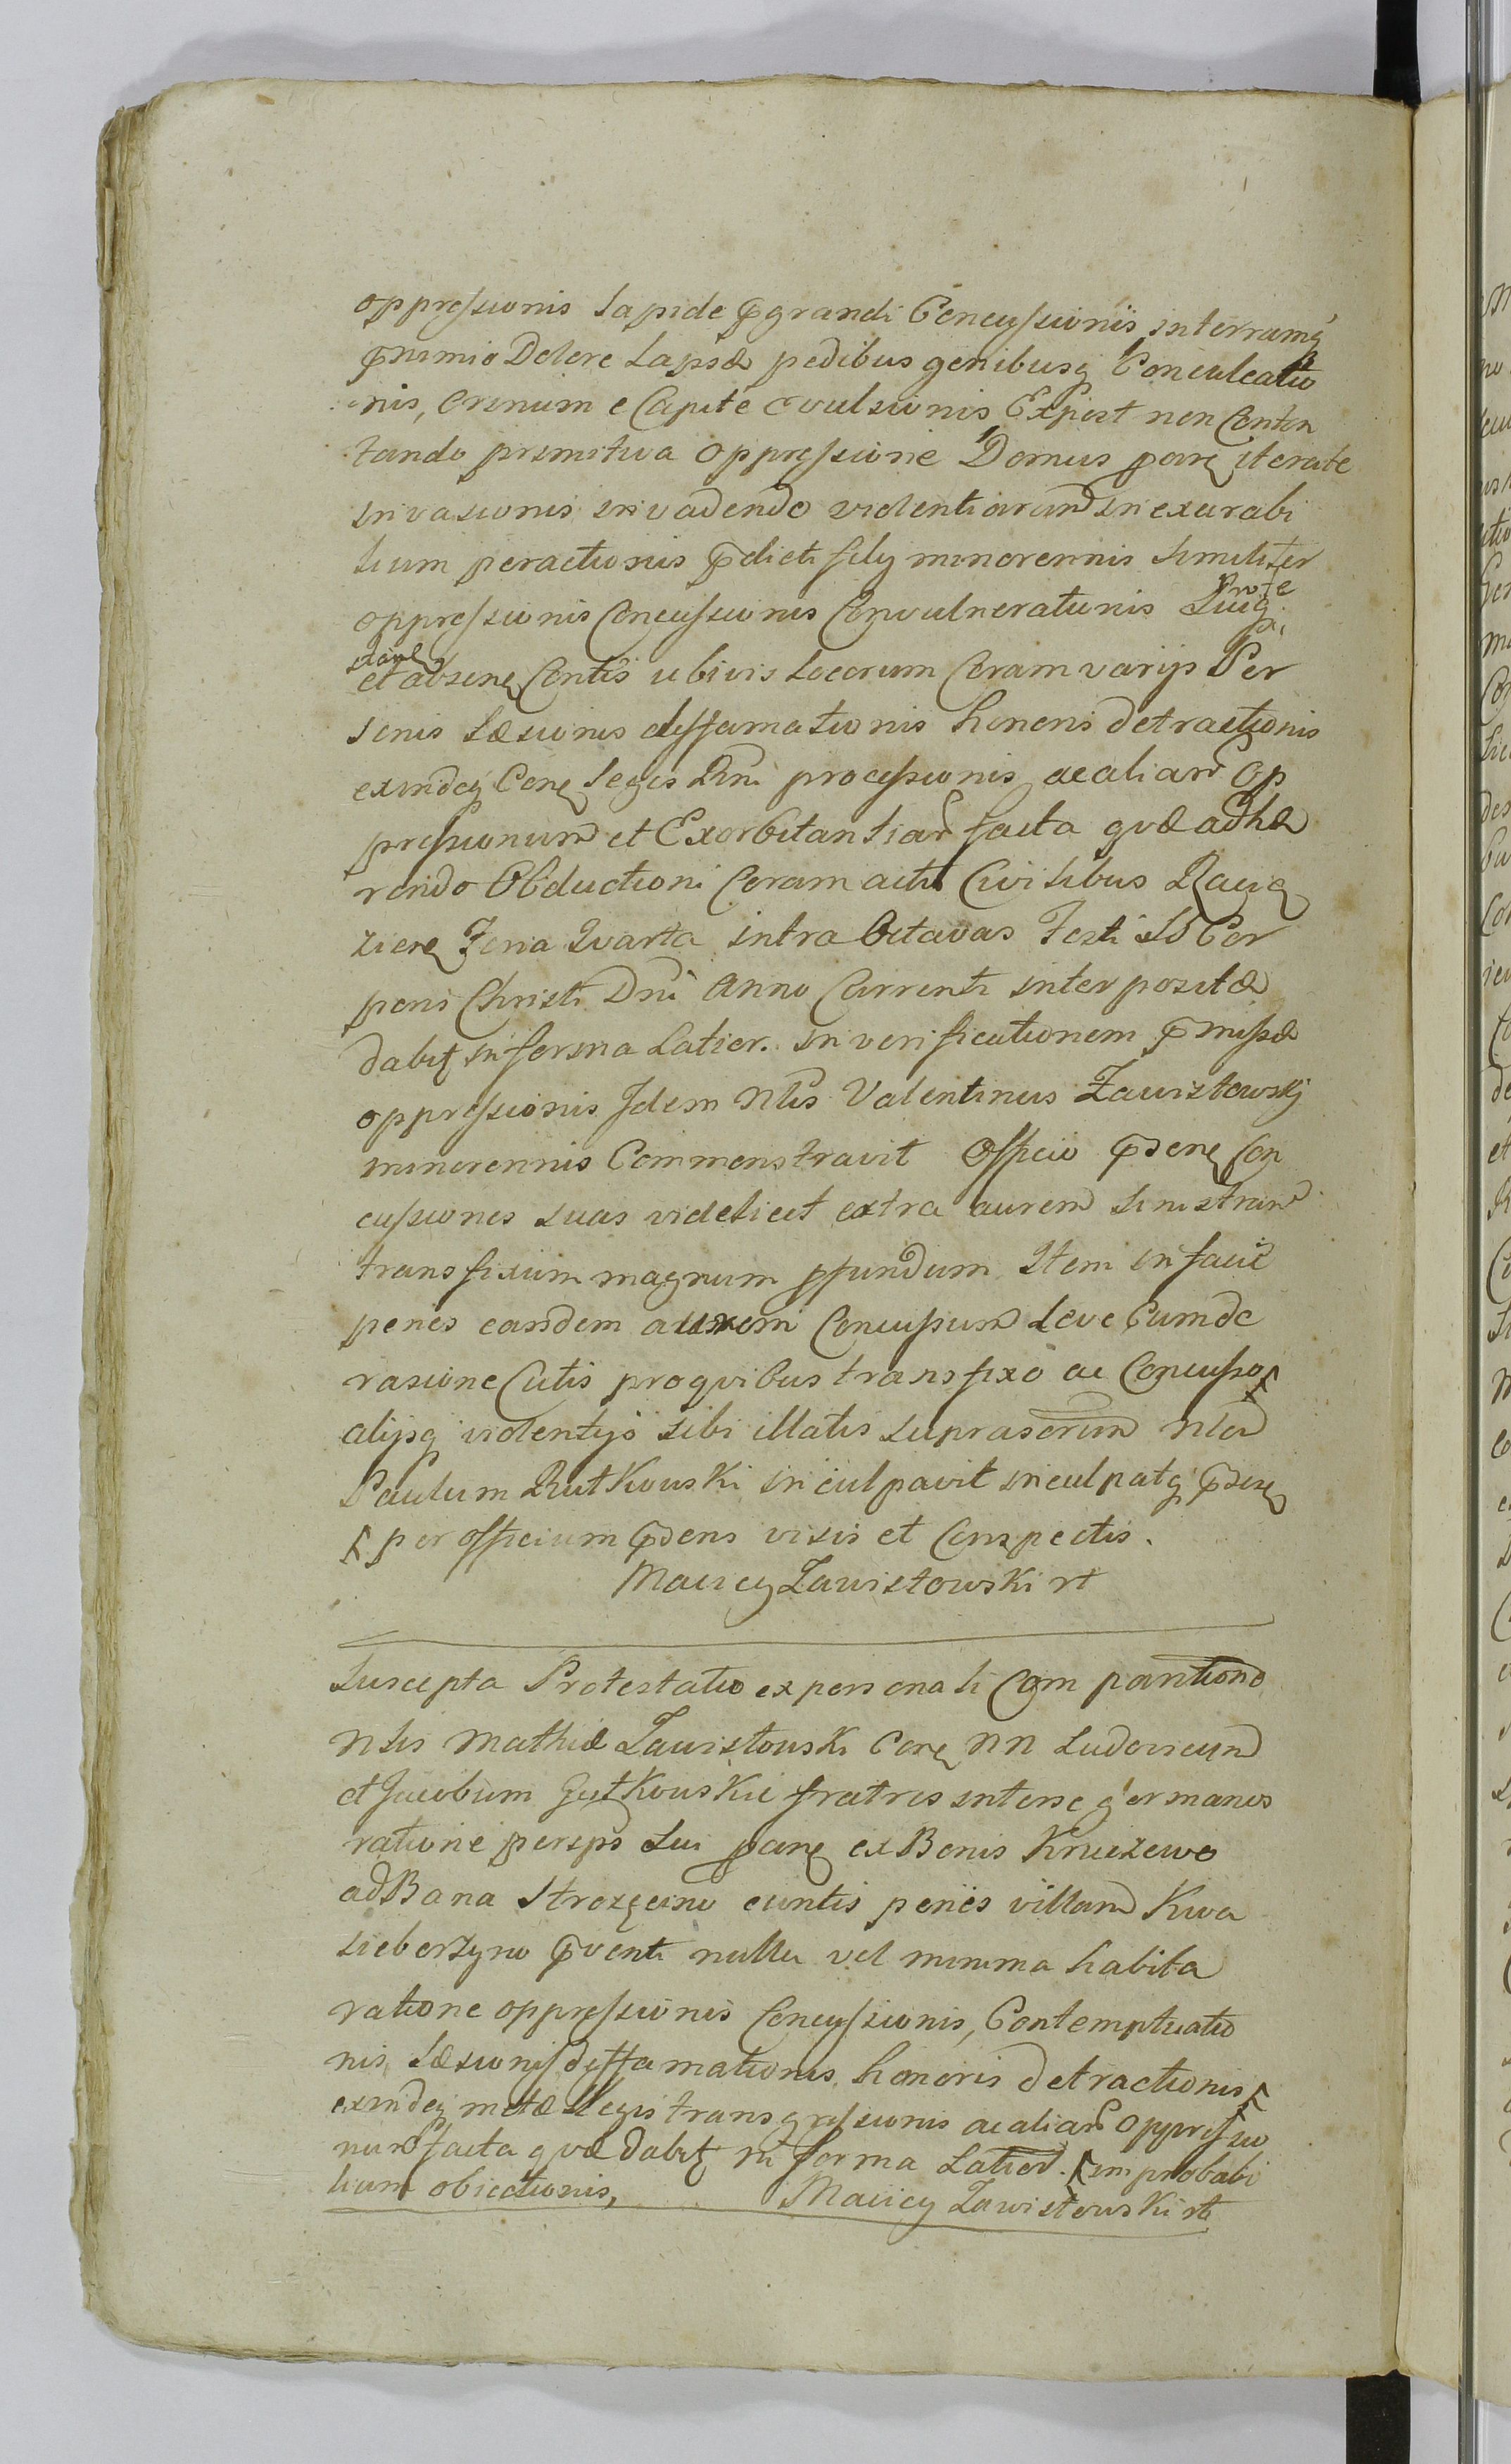 oppressionis lapide p̃grandi Concussionis in terramq́
p̃nimio Dolore Lapsæ pedibus genibusq́ Conculcatio
nis, crinum e Capite evulsionis Expost non Conten
tando primitiva oppressione Domus parẹ iteratæ
invasionis invadendo violentiarum inexcurabi
lium peractionis p̃dicti filij minorennis similiter
oppressionis Concussionis Convulnerationis Suiq́ Prote
stanẹ
et absenẹ Contis ubivis Locorum Coram varijs Per
sonis Læsionis diffamationis honoris detractionis
exindeq́ Conẹ Leges Regni processionis ac aliarum Op
pressionum et Exorbitantiarum facta quæ adhæ
rendo Obductioni Coram actis Civilibus Raciẹ
zierẹ Feria Quarta intra Octavas Festi SS Cor
poris Christi Dni Anno Currenti interpositæ
dabit̃ in forma Latior. in verificationem p̃missæ
oppressionis Idem Nlis Valentinus Zawistowskj
minorennis Commonstravit Officio p̃senẹ Con
cussiones suas videlicet extra aurem sinistram
transfixum magnum p̃fundum Item in facie
penes eandem aurem Concussum Leve Cum de
rasione Cutis pro quibus transfixo ac Concusso ⌈
alijsq́ violentijs sibi illatis suprascrium Nlem
Paulum Rutkowski inculpavit inculpatq́ p̃senẹ
⌈ per officium p̃sens visis et Conspectis.
Maciey Zawistowski rt
Suscepta Protestatio ex personali Comparitione
Nlis Mathiæ Zawistowski Conẹ NN Ludovicum
et Jacobum Gutkowskie fratres inter se germanos
ratione persps sui parẹ ex Bonis Kniczewo
ad Bana Strozęcino euntis penes villam Kwa
siebortzyno p̃venti nulla vel minima habita
ratione oppressionis Concussionis, Contemptuatio
nis, Læsionis diffamationis honoris detractionis ⌈
exindeq́ metæ Legis transgressionis ac aliarum oppressio
num facta quæ dabit̃ in forma Latior. ⌈ improbabi
lium obiectionis, Maciey Zawistowski rt